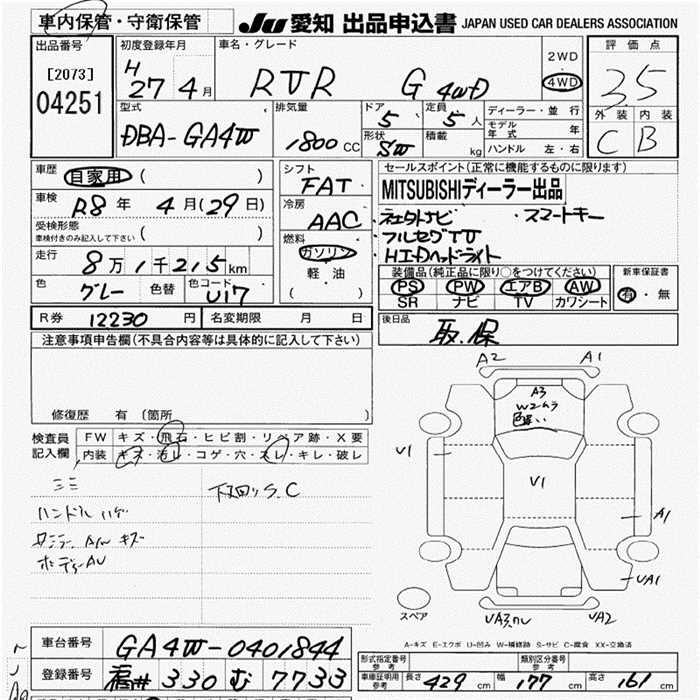 車内保管・守衛保管 JU 愛知 出品申込書 JAPAN USED CAR DEALERS ASSOCIATION
出品番号 初度登録年月 車名・グレード 評価点
[2073] H 27 4月 RVR G 4WD 2WD 4WD 3.5
04251 型式 排気量 ドア 定員 ディーラー・並行 外装 内装
DBA-GA4W 1800CC 5 5人 モデル年式 年 C B
形状 SW 積載 kg ハンドル 左・右
車歴 自家用 ( ) シフト FAT セールスポイント(正常に機能するものに限ります)
車検 R8年 4月(29日) 冷房 AAC MITSUBISHIディーラー出品
受検形態 車検付きのみ記入して下さい ( ) ・純正ナビ ・スマートキー
燃料 ガソリン ・フルセグTV
走行 8万1千215km 軽油 ・HIDヘッドライト
色 グレー 色替 色コード U17 ( ) 装備品(純正品に限り○をつけてください) 新車保証書
PS PW エアB AW 有・無
SR ナビ TV カワシート
R券 12230円 名変期限 月 日 後日品
注意事項申告欄(不具合内容等は具体的に記入して下さい) 取.保
修復歴 有 (箇所 )
検査員記入欄 FW キズ・飛石・ヒビ割・リペア跡・X要
内装 キズ・汚レ・コゲ・穴・スレ・キレ・破レ
A2 A1
A3
W2ムラ
色違い
U1 U1
A1
UA1
UA2
下回りS.C
スペア
A-キズ E-エクボ U-凹み W-補修跡 S-サビ C-腐食 XX-交換済
車台番号 GA4W-0401844
登録番号 福井 330 む 7733
型式指定番号 参考 類別区分番号 参考
車庫証明用 参考 長さ 429cm 幅 177cm 高さ 161cm